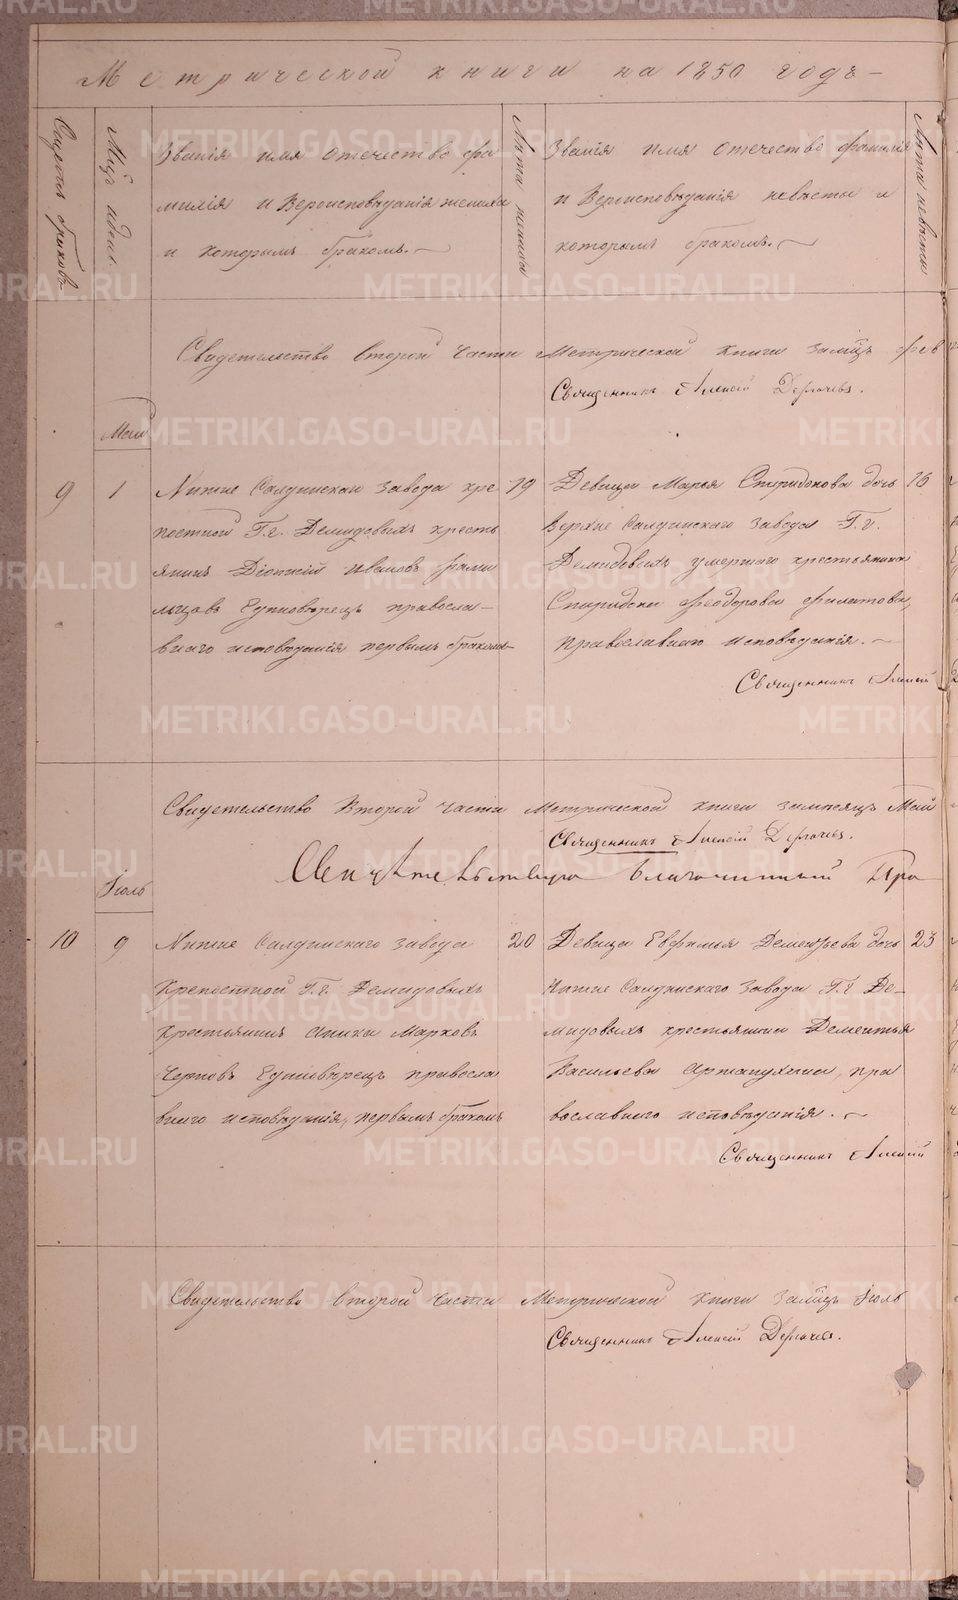 Метрической книги на 1850 годъ
Счетъ браковъ
Мцъ и день
Званія имя отечество фа
милія и вероисповѣданія жениха
и которымъ бракомъ.
Лѣта жениха
Званія имя отечество фамилія
и вероисповѣданія невѣсты и
которымъ бракомъ.
Лѣта невѣсты
Свидетельство второй части Метрической книги за мцъ фев
Священникъ Алексій Дергачевъ.
Маи
9 1
Нижне Салдинскаи завода кре
постной Г.г. Демидовыхъ кресть
янинъ Діонисій Ивановъ
Единовѣрецъ правосла
внаго исповѣданія первымъ бракомъ
19
Девица Марья Спиридонова дочь
Верхне Салдинскаго завода Г.г.
Демидовыхъ умершаго крестьянина
Спиридона Феодорова Филатова,
православнаго исповѣданія.
16
Священникъ Алексій
Свидетельство второй части Метрической книги за месяцъ Май
Священникъ Алексій Дергачевъ.
Свидѣтельствую Благочинный Про
Іюль
10 9
Нижне Салдинскаго завода
Крепостной Г.г. Демидовыхъ
Крестьянинъ Аника Марковъ
Черновъ Единовѣрецъ правосла
внаго исповѣданія, первымъ бракомъ
20
Девица Евфимья Дементьева дочь
Нижне Салдинскаго завода Г.г Де-
мидовыхъ крестьянина Дементья
Васильева пра
вославнаго исповѣданія.
23
Священникъ Алексій
Свидетельство второй части Метрической книги за мцъ Іюль
Священникъ Алексій Дергачевъ.
METRIKI.GASO-URAL.RU